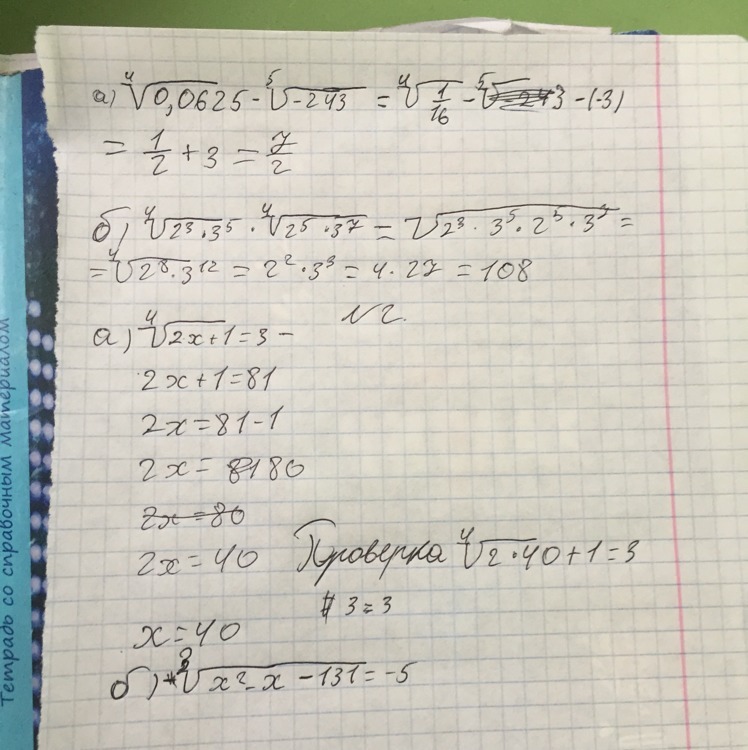 а) ⁴√0,0625 - ⁵√-243 = ⁴√1/16 - ⁵√ 3 - (-3)
= 1/2 + 3 = 7/2
б) ⁴√2³·3⁵ · ⁴√2⁵·3⁷ = √2³·3⁵·2⁵·3⁷ =
= ⁴√2⁸·3¹² = 2²·3³ = 4·27 = 108
N2.
а) ⁴√2x+1 = 3 -
2x+1=81
2x=81-1
2x= 8180
2x=80
2x=40
Проверка ⁴√2·40+1=3
3=3
x=40
б) ³√x²-x-131=-5
Тетрадь со справочным материалом